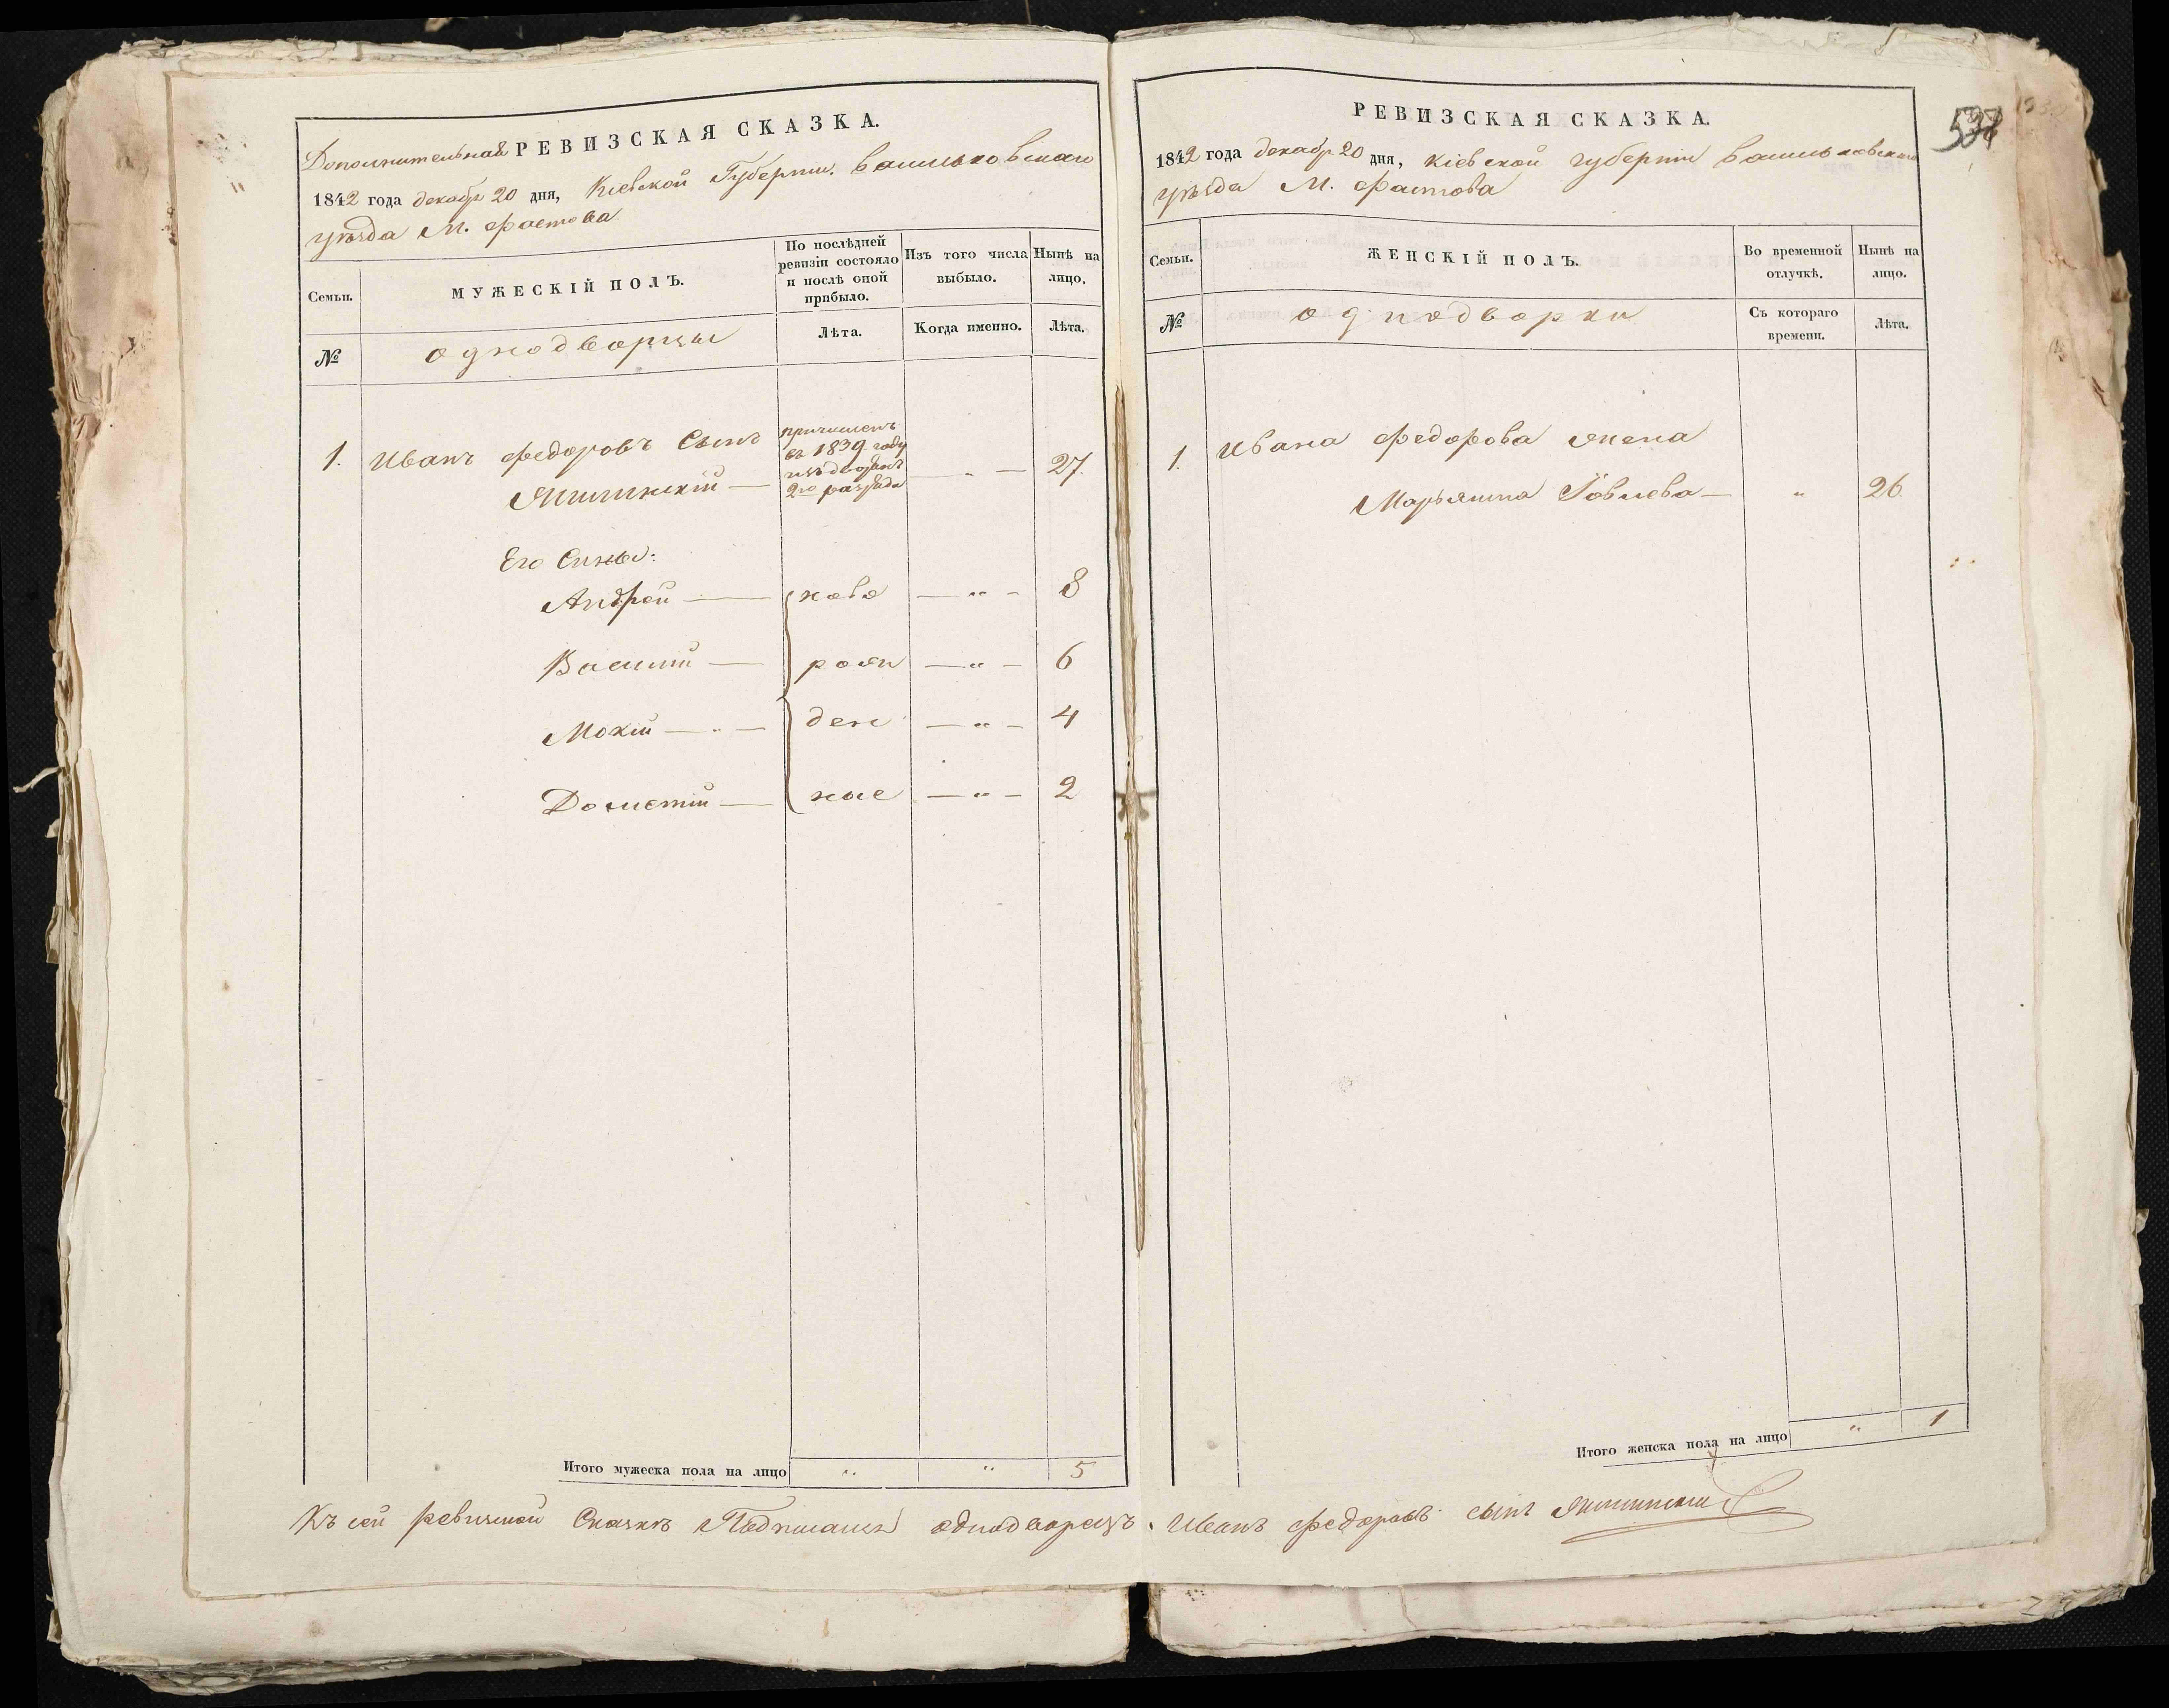 Дополнительная РЕВИЗСКАЯ СКАЗКА.
1842 года декабр 20 дня, Кіевской Губерніи. васильковскаго
уѣзда М. фастова
Семьи.
МУЖЕСКІЙ ПОЛЪ.
По послѣдней
ревизіи состояло
и послѣ оной
прибыло.
Изъ того числа
выбыло.
Нынѣ на
лицо.
№
однодворцы
Лѣта.
Когда именно.
Лѣта.
1. Иванъ федоровъ Сынъ
причисленъ
въ 1839 году
изъ дворянъ
2го разряда
27.
Его Сины:
Андрей — ново — „ — 8
Василій — рож — „ — 6
Мокій — „ — ден — „ — 4
Дометій — ные — „ — 2
Итого мужеска пола на лицо „ „ 5
Къ сей ревизской Сказкѣ Подписался однодворецъ. Иванъ федоровъ сынъ
РЕВИЗСКАЯ СКАЗКА.
1842 года декабр 20 дня, Кіевской губерніи васильковскаго
уѣзда М. фастова
537
Семьи.
ЖЕНСКІЙ ПОЛЪ.
Во временной
отлучкѣ.
Нынѣ на
лицо.
№
однодворки
Съ котораго
времени.
Лѣта.
1. Ивана федорова жена
Марьянна — „ 26.
Итого женска пола на лицо „ 1